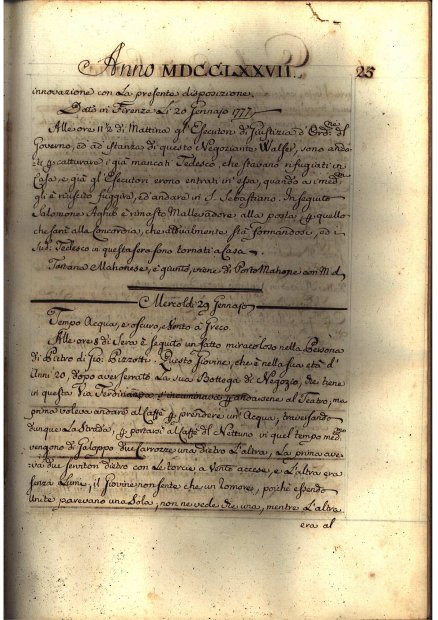 Anno MDCCLXXVII. 25
innovazione con La presente disposizione.
Dato in Firenze Li 20 Gennajo 1777
Alle ore 11 1/2 di Mattina gl'Esecutori di Giustizia d'Ord.ne del
Governo, ed ad istanza di questo Negoziante Walser, sono anda-
ti p catturare i già mencati Tedesco, che stavano rifugiati in
Casa, e già gl'Esecutori erono entrati in essa, quando a i med.mi
gl'è riuscito fuggire, ed andare in S. Sebastiano. In seguito
Salomone Aghib è rimasto Mallevadore alla posta, p quello
che sarà alla Concordia, che attualmente stà formandosi, ed i
Sud.i Tedesco in questa sera sono tornati a Casa
Tanano Mahonese, è giunto, viene di Porto Mahone con
Mercoldì 29 Gennajo
Tempo Acqua, e oscuro, e Vento a Greco.
Alle ore 8 di Sera è seguito un fatto miracoloso nella Persona
di Pietro di Gio: Pizzotti. Questo Giovine, che è nella sua età d'
Anni 20, dopo aver serrato La sua Bottega di Negozio, che tiene
in questa Via Ferdinanda, s'incaminava p andarsene al Teatro; ma
prima voleva andare al Caffè p prendere un'Acqua; traversando
dunque La Strada, p portarsi al Caffè del Nettuno in quel tempo
vengono di Galoppo due Carrozze una dietro L'altra, La prima ave-
va due Servitori dietro con Le torcie a Vento accese, e L'altra era
senza Lumi, il Giovine non sente che un romore, poichè essendo
unite parevano una Sola, non ne vede che una, mentre L'altra
era al